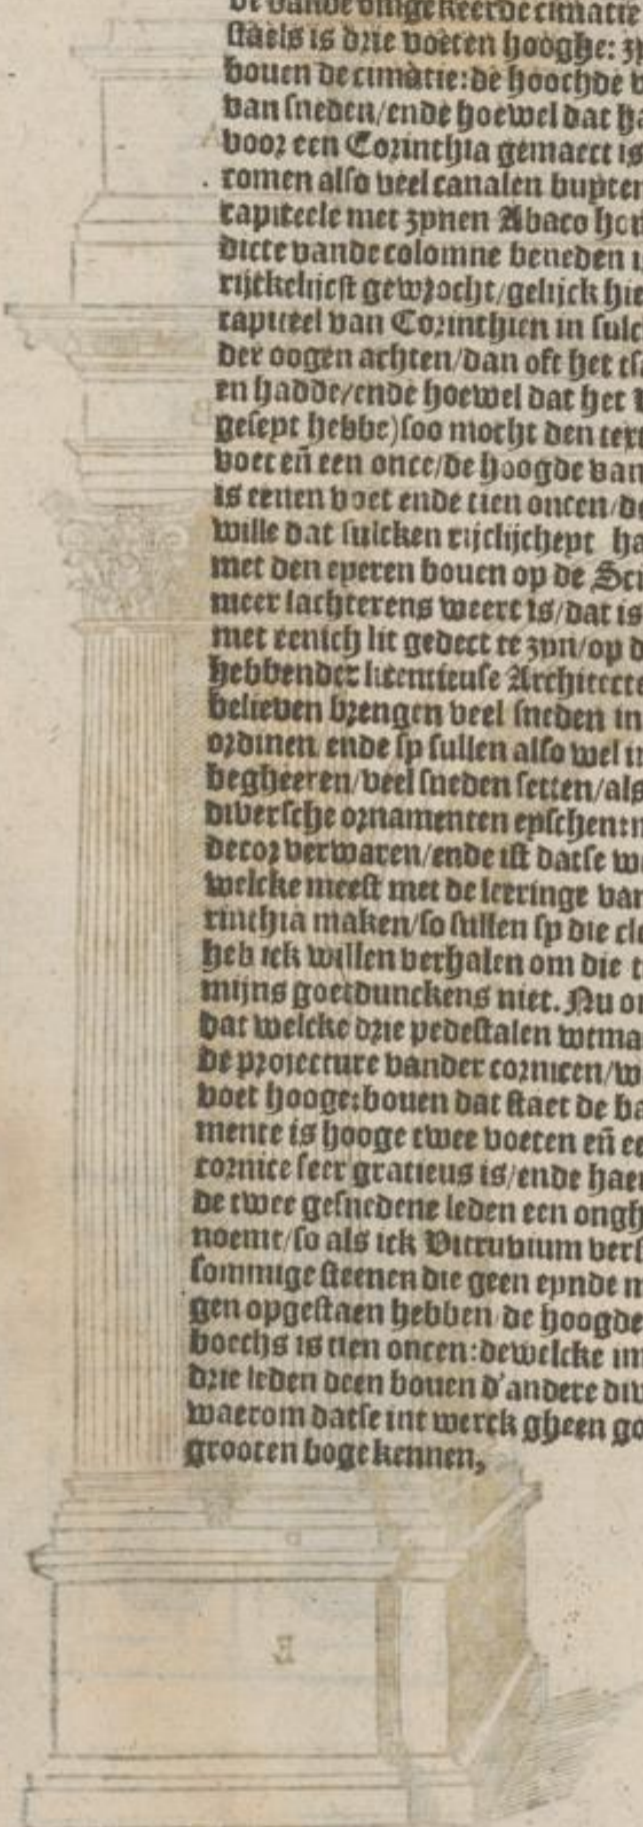 de vande omgekeerde cimatie
staels is drie voeten hooghe: zy
bouen de cimatie: de hoochde v
van sneden/ende hoewel dat ha
voor een Corinthia gemaect is
comen also veel canalen buyten
capiteele met zynen Abaco hou
dicte vande colomne beneden i
rijckelijcst gewrocht/gelijck hie
capiteel van Corinthien in sulc
der oogen achten/dan oft het cla
en hadde/ende hoewel dat het v
geseyt hebbe) soo mocht den text
voet eñ een once/de hoogde van
is eenen voet ende tien oncen/de
wille dat sulcken rijclijcheyt ha
met den eyeren bouen op de Sci
meer lachterens weert is/dat is
met eenich lit gedect te zyn/op d
hebbender licentieuse Architecte
believen brengen veel sneden in
ordinen ende sy sullen also wel in
begheeren/veel sneden setten/als
diversche ornamenten eyschen: m
decor verwaren/ende ist datse wa
welcke meest met de leeringe van
rinthia maken/so sullen sy die cle
heb ick willen verhalen om die t
mijns goetdunckens niet. Nu on
dat welcke drie pedestalen wtma
de proiecture vander cornicen/w
voet hooge: bouen dat staet de ba
mente is hooge twee voeten eñ ee
cornice seer gratieus is/ende haer
de twee gesnedene leden een ongh
noemt/so als ick Vitruvium vers
sommige steenen die geen eynde m
gen opgestaen hebben de hoogde
boechs is tien oncen: dewelcke im
drie leden deen bouen d'andere div
waerom datse int werck gheen go
grooten boge kennen,